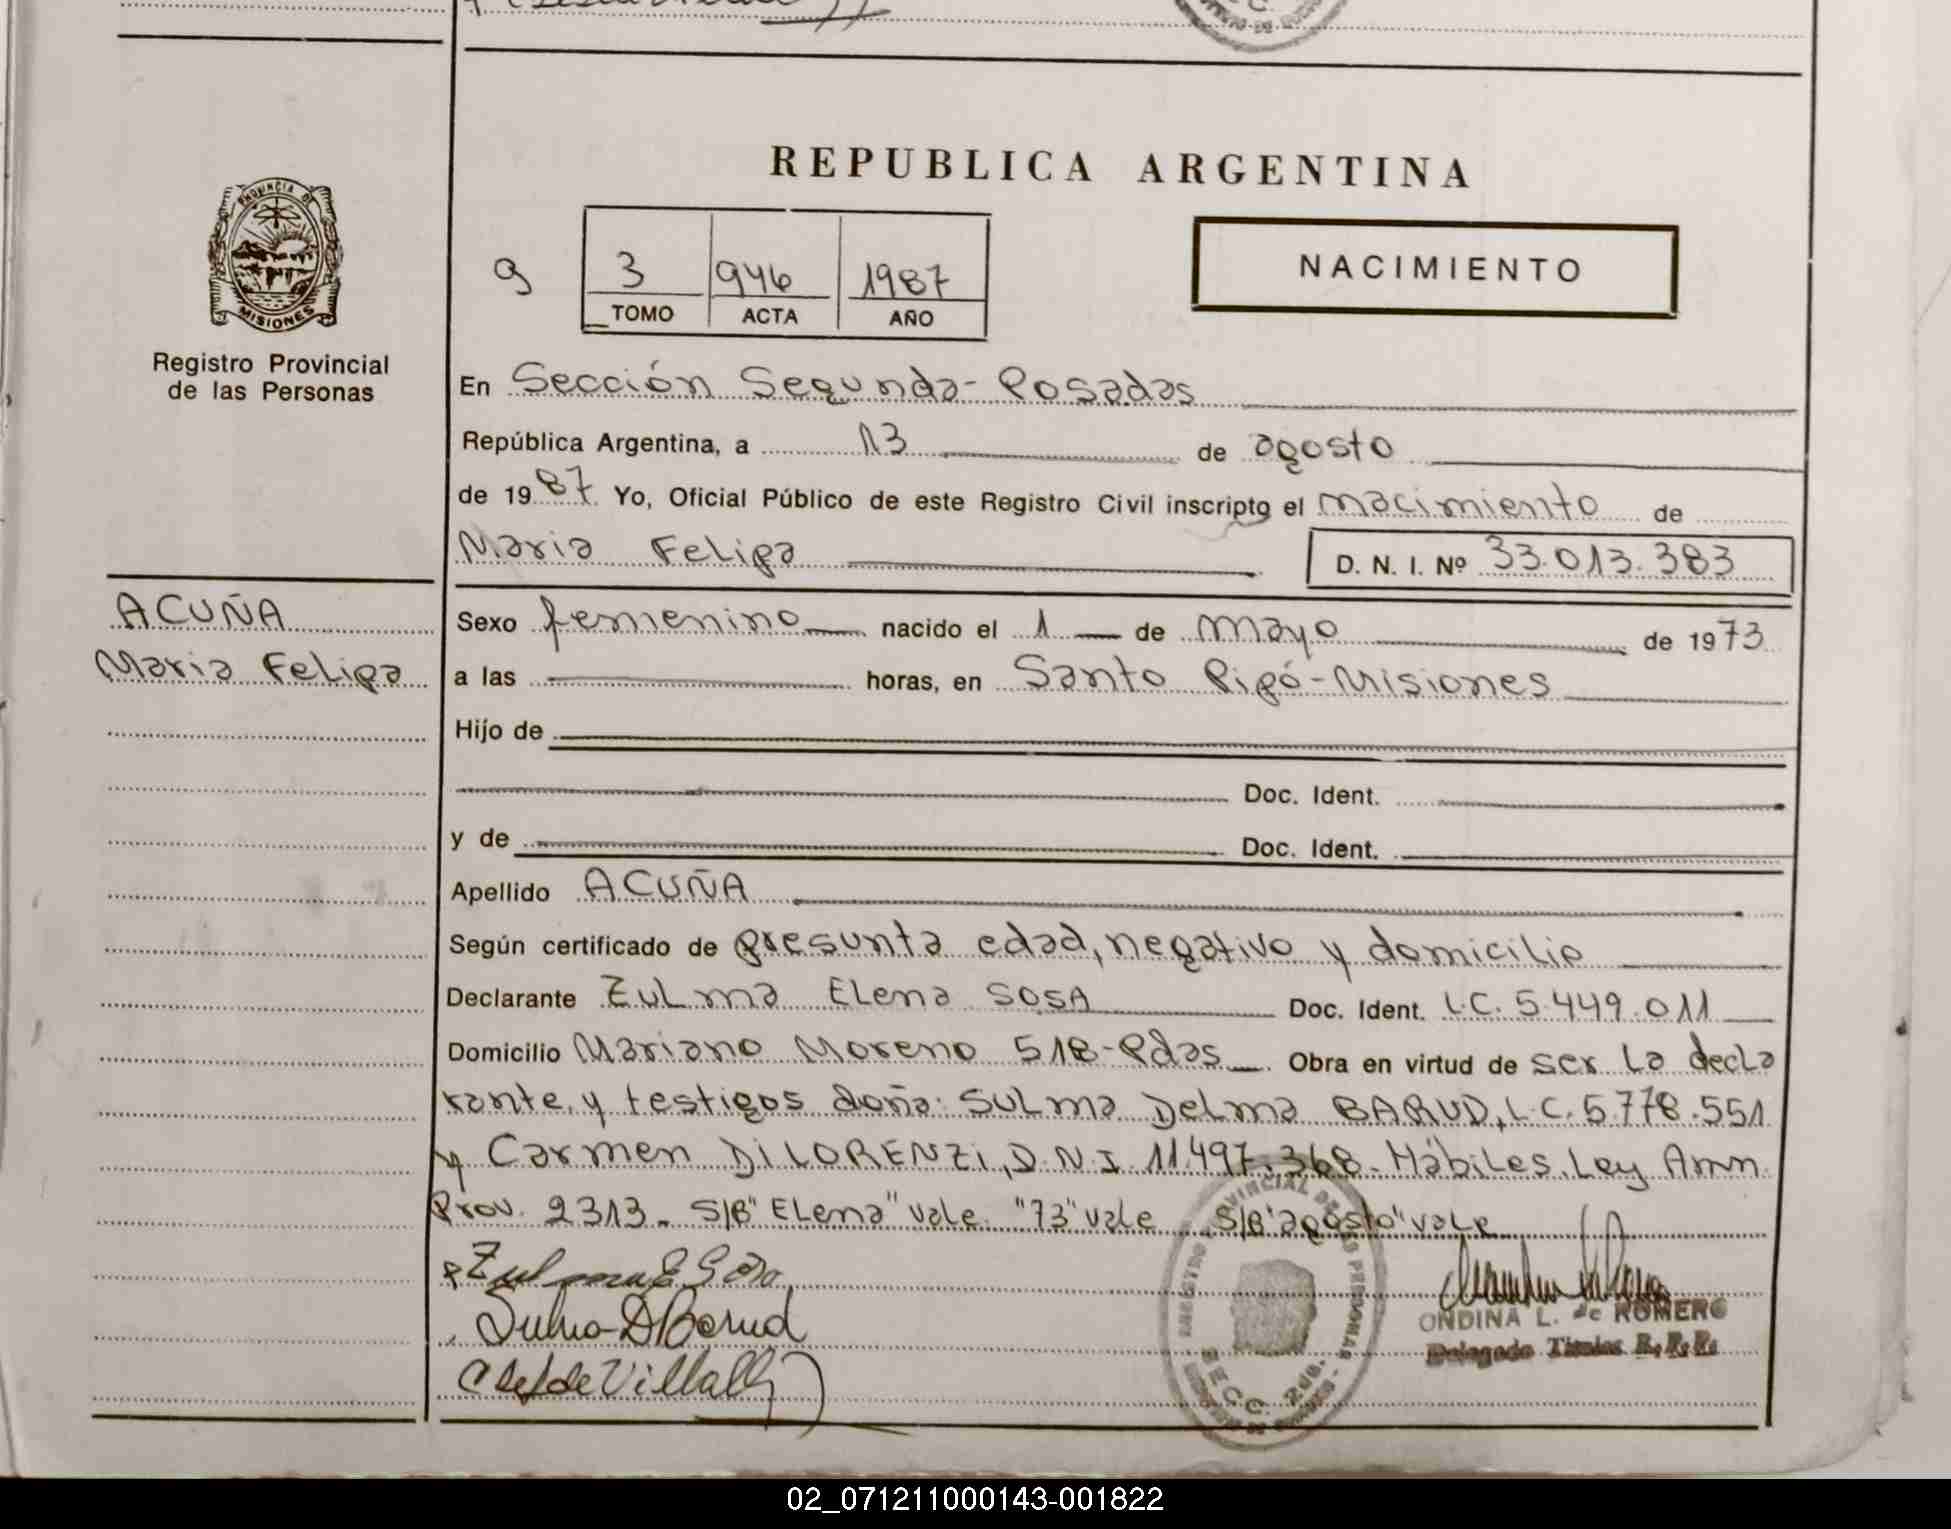 REPUBLICA ARGENTINA
PROVINCIA DE
MISIONES
Registro Provincial
de las Personas
9
3 946 1987
TOMO ACTA AÑO
NACIMIENTO
En Sección Segunda - Posadas
República Argentina, a 13 de agosto
de 1987. Yo, Oficial Público de este Registro Civil inscripto el nacimiento de
Maria Felipa D. N. I. Nº 33.013.383
ACUÑA
Maria Felipa
Sexo femenino nacido el 1 de mayo de 1973
a las horas, en Santo Pipó - Misiones
Hijo de
Doc. Ident.
y de Doc. Ident.
Apellido ACUÑA
Según certificado de presunta edad, negativo y domicilio
Declarante Zulma Elena SOSA Doc. Ident. L.C. 5.449.011
Domicilio Mariano Moreno 518 - Pdas Obra en virtud de ser la decla
rante, y testigos doña: Sulma Delma BARUD, L.C. 5.778.551
y Carmen DI LORENZI, D.N.I 11.497.368. Hábiles. Ley Amn.
Prov. 2313. S/B "Elena" vale. "73" vale S/B "agosto" vale
Zulma E Sosa
ONDINA L. de ROMERO
Delegado Titular R.P.P.
SECC. 2da.
02_071211000143-001822